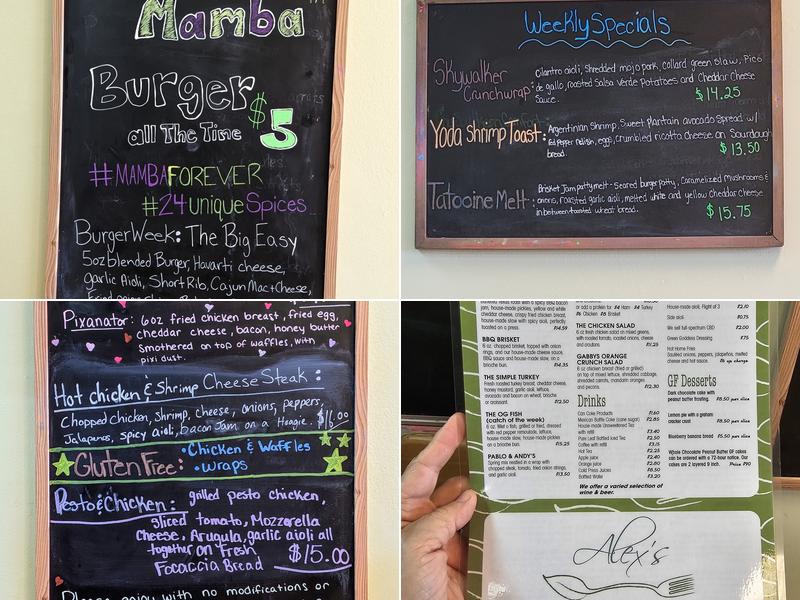 Mamba
Burger
all The Time
$5
#MAMBAFOREVER
#24 unique Spices
Burger Week: The Big Easy
5oz blended Burger, Havarti cheese,
garlic Aioli, Short Rib, Cajun Mac+Cheese,
Weekly Specials
Skywalker
Crunchwrap:
cilantro aioli, shredded mojo pork, collard green slaw, Pico
de gallo, roasted Salsa Verde Potatoes and Cheddar Cheese
Sauce.
$14.25
Yoda Shrimp Toast:
Argentinian Shrimp, Sweet Plantain avocado Spread w/
Red Pepper Relish, eggs, crumbled ricotta Cheese on Sourdough
bread.
$13.50
Tatooine Melt:
Brisket Jam patty melt - seared burger patty, Caramelized Mushrooms &
onions, roasted garlic aioli, melted white and yellow Cheddar Cheese
in between toasted wheat bread.
$15.75
Pixanator: 6oz fried chicken breast, fried egg,
cheddar cheese, bacon, honey butter
Smothered on top of waffles, with
pixi dust.
Hot chicken & Shrimp Cheese Steak:
Chopped chicken, shrimp, cheese, onions, peppers,
Jalapenos, spicy aioli, bacon Jam on a Hoagie. $16.00
Gluten Free:
• Chicken & Waffles
• Wraps
Pesto & Chicken: grilled pesto chicken,
sliced tomato, Mozzarella
Cheese, Arugula, garlic aioli all
together on fresh
Focaccia Bread
$15.00
Please enjoy with no modifications or
BBQ BRISKET
6 oz. chopped brisket, topped with onion
rings, and our house-made cheese sauce,
THE SIMPLE TURKEY
Fresh roasted turkey breast, cheddar cheese,
honey mustard, garlic aioli, bacon, lettuce,
avocado and bacon on wheat, brioche
or croissant
THE OG FISH
(catch of the week)
6 oz. filet of fish, grilled or fried, dressed
with red pepper remoulade, lettuce,
PABLO & ANDY'S
and garlic aioli.
THE CHICKEN SALAD
6 oz fresh chicken salad on mixed greens,
with roasted tomato, roasted onions, cheese
and croutons
GABBY'S ORANGE
CRUNCH SALAD
6 oz chicken breast (fried or grilled)
on top of mixed lettuce, shredded cabbage,
shredded carrots, mandarin oranges
and pecans.
Drinks
Can Coke Products
Mexican Bottle Coke (cane sugar)
House made Unsweetened Tea
with refill
Pure Leaf Bottled Iced Tea
Coffee
with refill
Hot Tea
Apple juice
Orange juice
Cold Press Juices
Bottled Water
We offer a varied selection of
wine & beer.
House-made aioli, Flight of 3
Side aioli
We sell full-spectrum CBD
Green Goddess Dressing
Hot Home Fries
Sautéed onions, peppers, jalapeños, melted
cheese and hot sauce.
GF Desserts
Dark chocolate cake with
peanut butter frosting.
Lemon pie with a graham
cracker crust
Blueberry banana bread
Whole Chocolate Peanut Butter GF cakes
can be ordered with a 72-hour notice. Our
cakes are 2 layered 9 inch.
Alex's